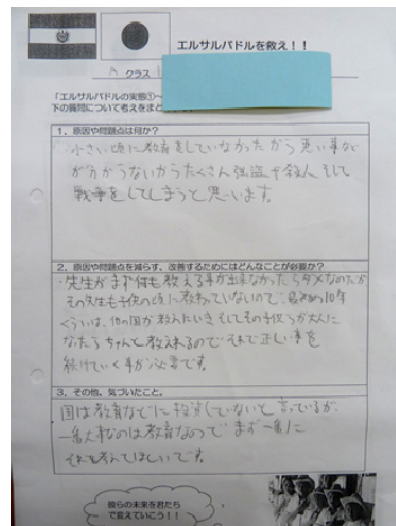 エルサルバドルを救え！！
A クラス 1
「エルサルバドルの実態①～
下の質問について考えをまと
1．原因や問題点は何か？
・小さい頃に教育をしていなかったから悪い事など
が分からないからたくさん強盗や殺人、そして
戦争をしてしまうと思います。
2．原因や問題点を減らす、改善するためにはどんなことが必要か？
・先生がまず何も教える事が出来なかったらダメなのだが
その先生も子供の頃に教わっていないので、最初の10年
くらいは、他の国が教えにいき そしてその子供らが大人に
なったらちゃんと教えれるので それまで正しい事を
続けていく事が必要です。
3．その他、気づいたこと。
国は教育などに投資していないと言っているが、
一番大切なのは教育なので まず一番に
それを考えてほしいです。
彼らの未来を君たち
で変えていこう！！